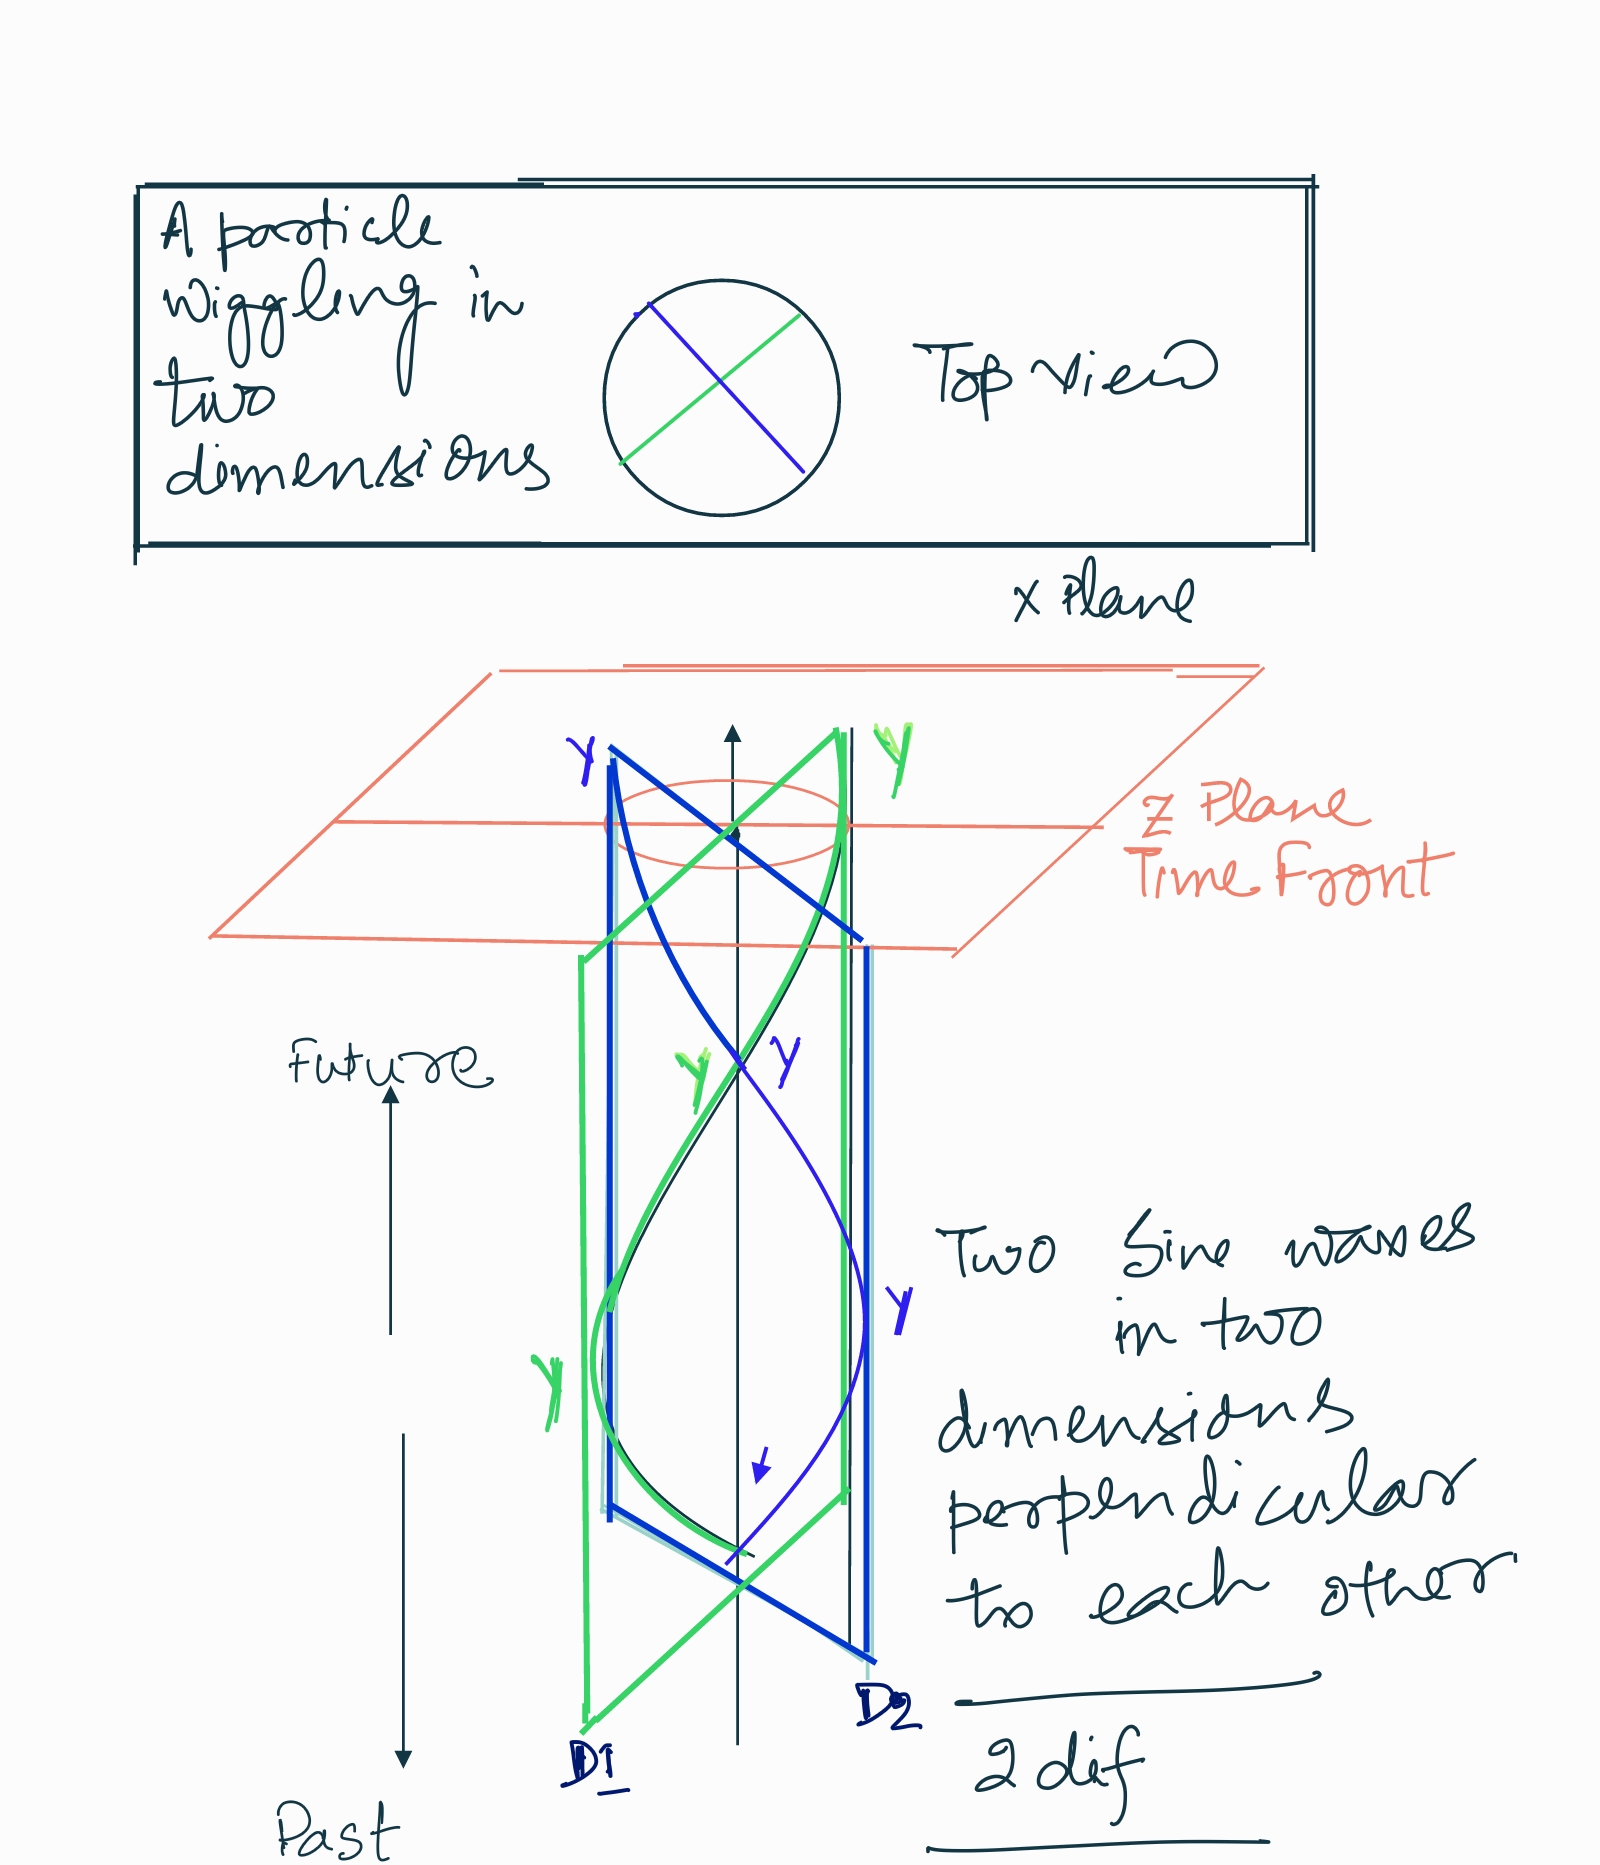 A particle
wiggling in
two
dimensions
Top view
X Plane
Y
Y
Z Plane
Time Front
Future
Y
Y
Two Sine waves
in two
dimensions
perpendicular
to each other
Y
Y
D2
D1
2 dif
Past